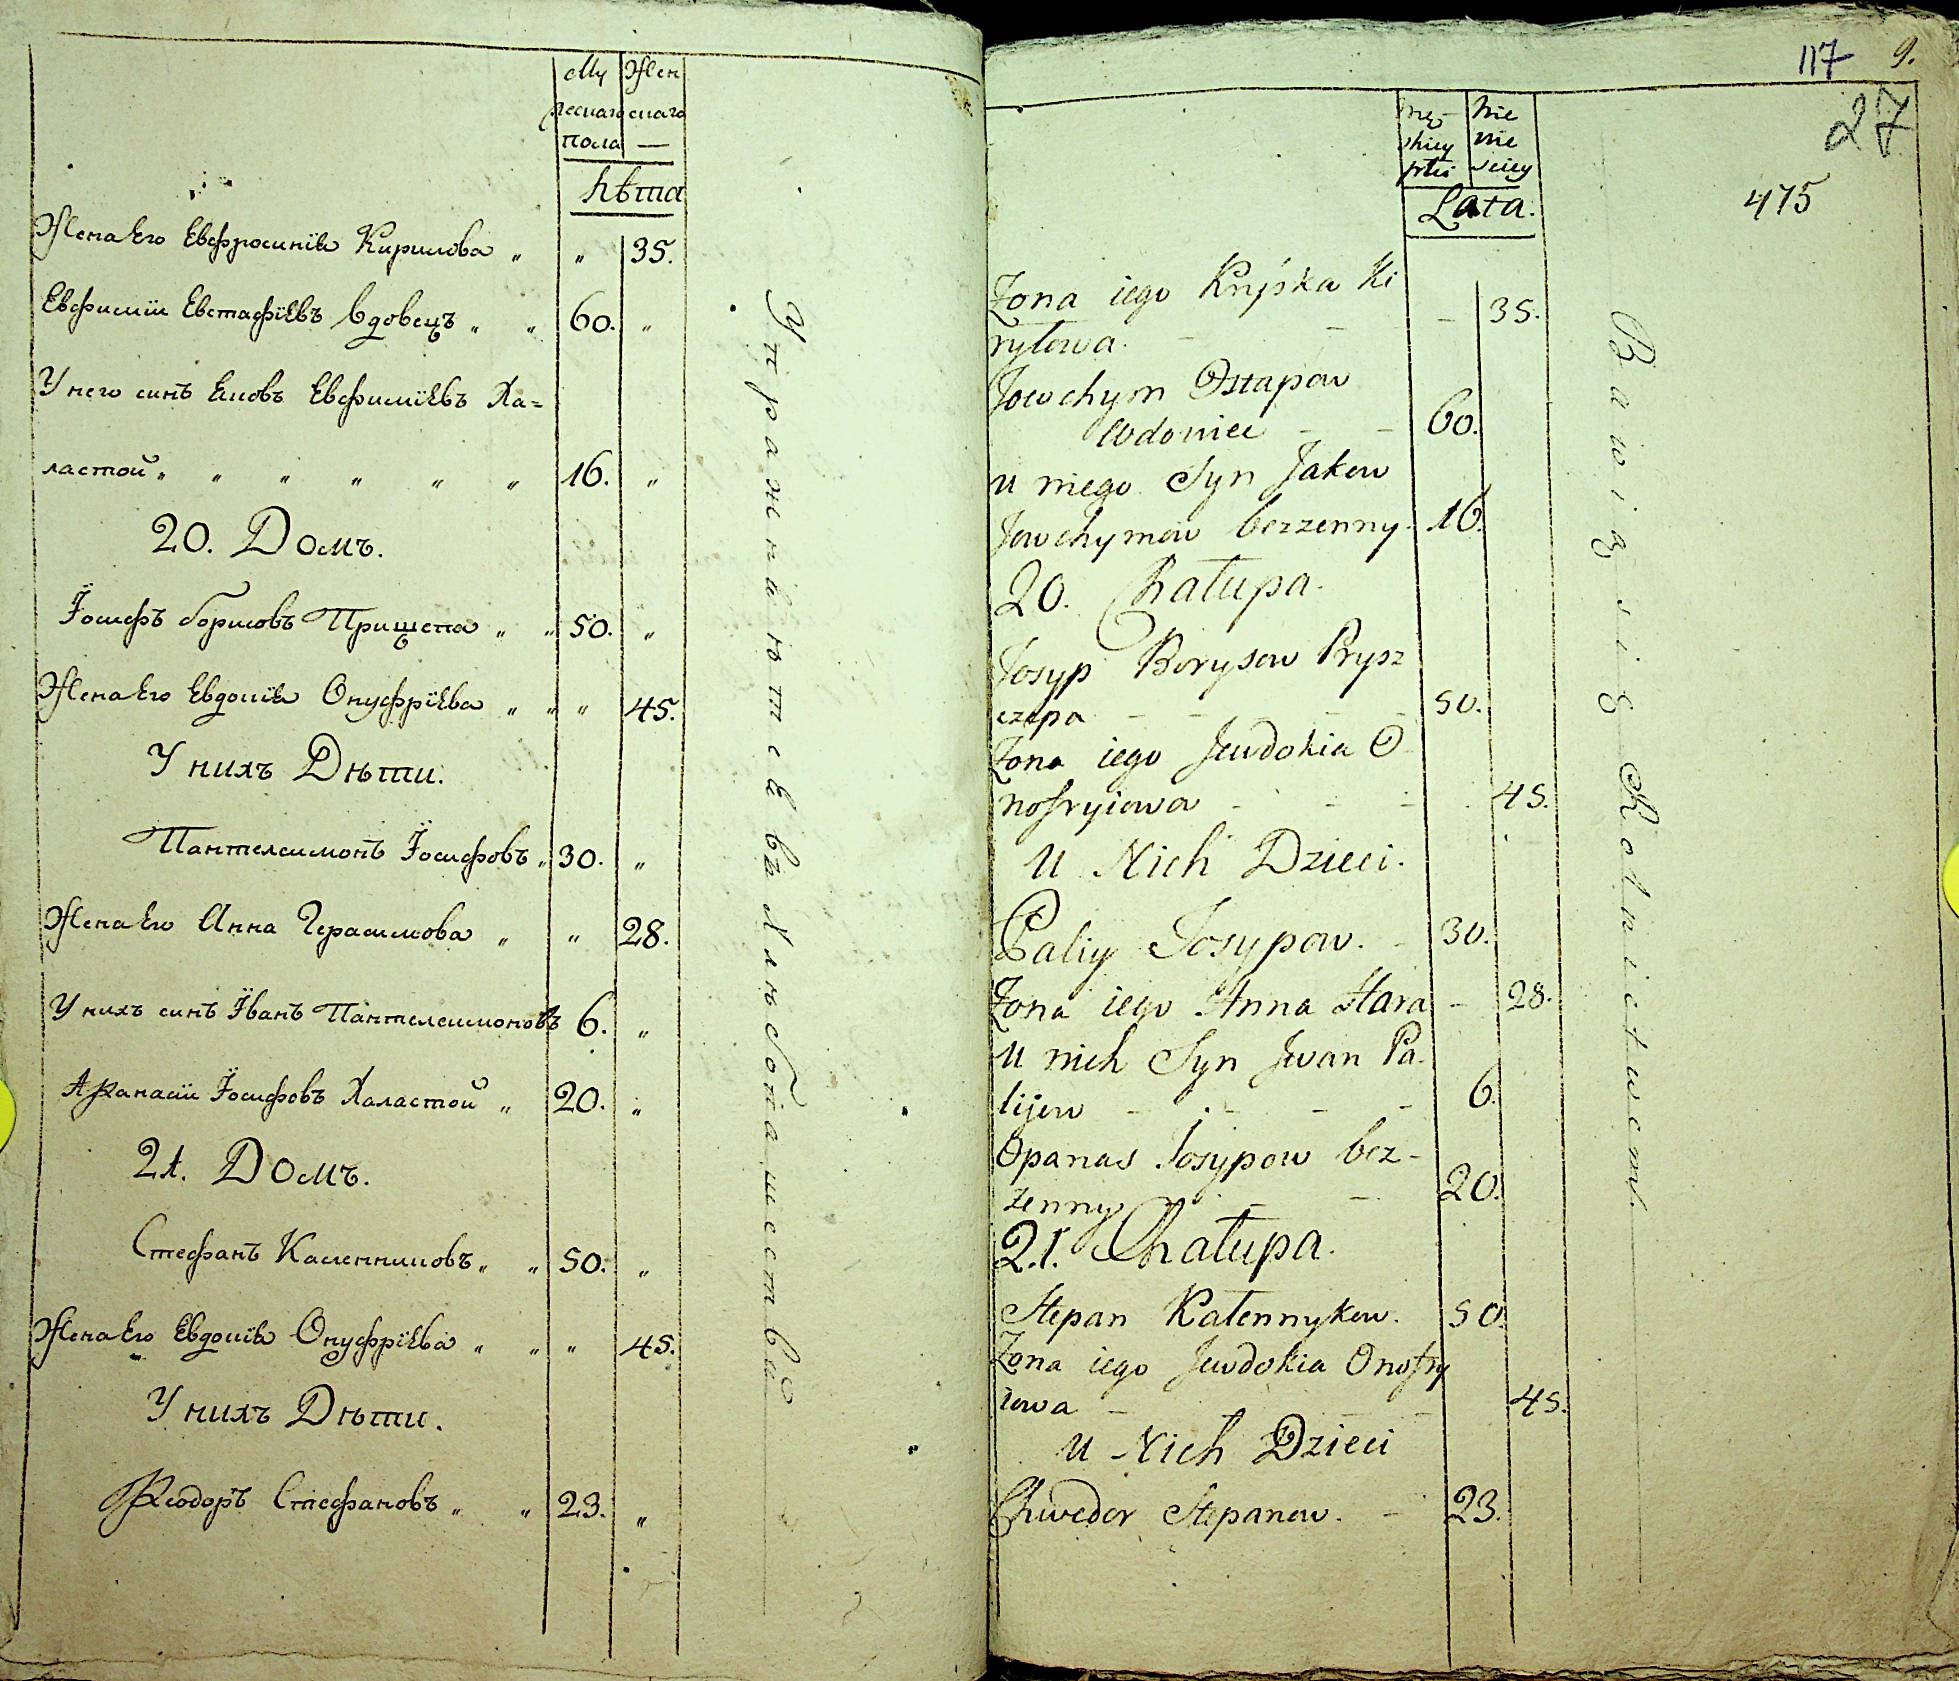 Мужескаго пола
Женскаго —
Лѣта
Жена Его Евфросинїя Кирилова „ „ 35.
Евфимїй Евстафїевъ вдовецъ „ „ 60. „
У него синъ Яковъ Евфимїевъ Ха=
ластой „ „ „ „ „ „ 16. „
20. Домъ.
Їосифъ борисовъ Прищепа „ „ 50. „
Жена Его Евдокїя Онуфрїева „ „ „ 45.
У нихъ Дѣти.
Пантелеимонъ Їосифовъ „ 30. „
Жена Его Анна Герасимова „ „ 28.
У нихъ синъ Їванъ Пантелеимоновъ 6. „
Афанасїй Їосифовъ Халастой „ 20. „
21. Домъ.
Стефанъ Каленниковъ „ „ 50. „
Жена Его Евдокїя Онуфрїева „ „ „ 45.
У нихъ Дѣти.
Феодоръ Стефановъ „ „ 23. „
Упражняются въ Хлѣбопашествѣ
117 9.
27
475
Lata.
Zona iego Kryśka Ki
ryłowa. — — — 35.
Jowchym Ostapow
Wdowiec — — 60.
u niego Syn Jakow
Jowchymow bezzenny. 16.
20. Chałupa.
Josyp Borysow Prysz
czepa — — — — 50.
Zona iego Jewdokia O
nofryiowa — — — 45.
U Nich Dzieci.
Paliy Josypow. — 30.
Zona iego Anna Hara — 28.
U nich Syn Jwan Pa.
lijow — — — — 6.
Opanas Josypow bez-
zenny — — 20.
21. Chałupa.
Stepan Kałennykow. 50.
Zona iego Jewdokia Onofry
iowa — — — — 45.
U Nich Dzieci
Chwedor Stepanow. — 23.
Bawią się Rolnictwem.